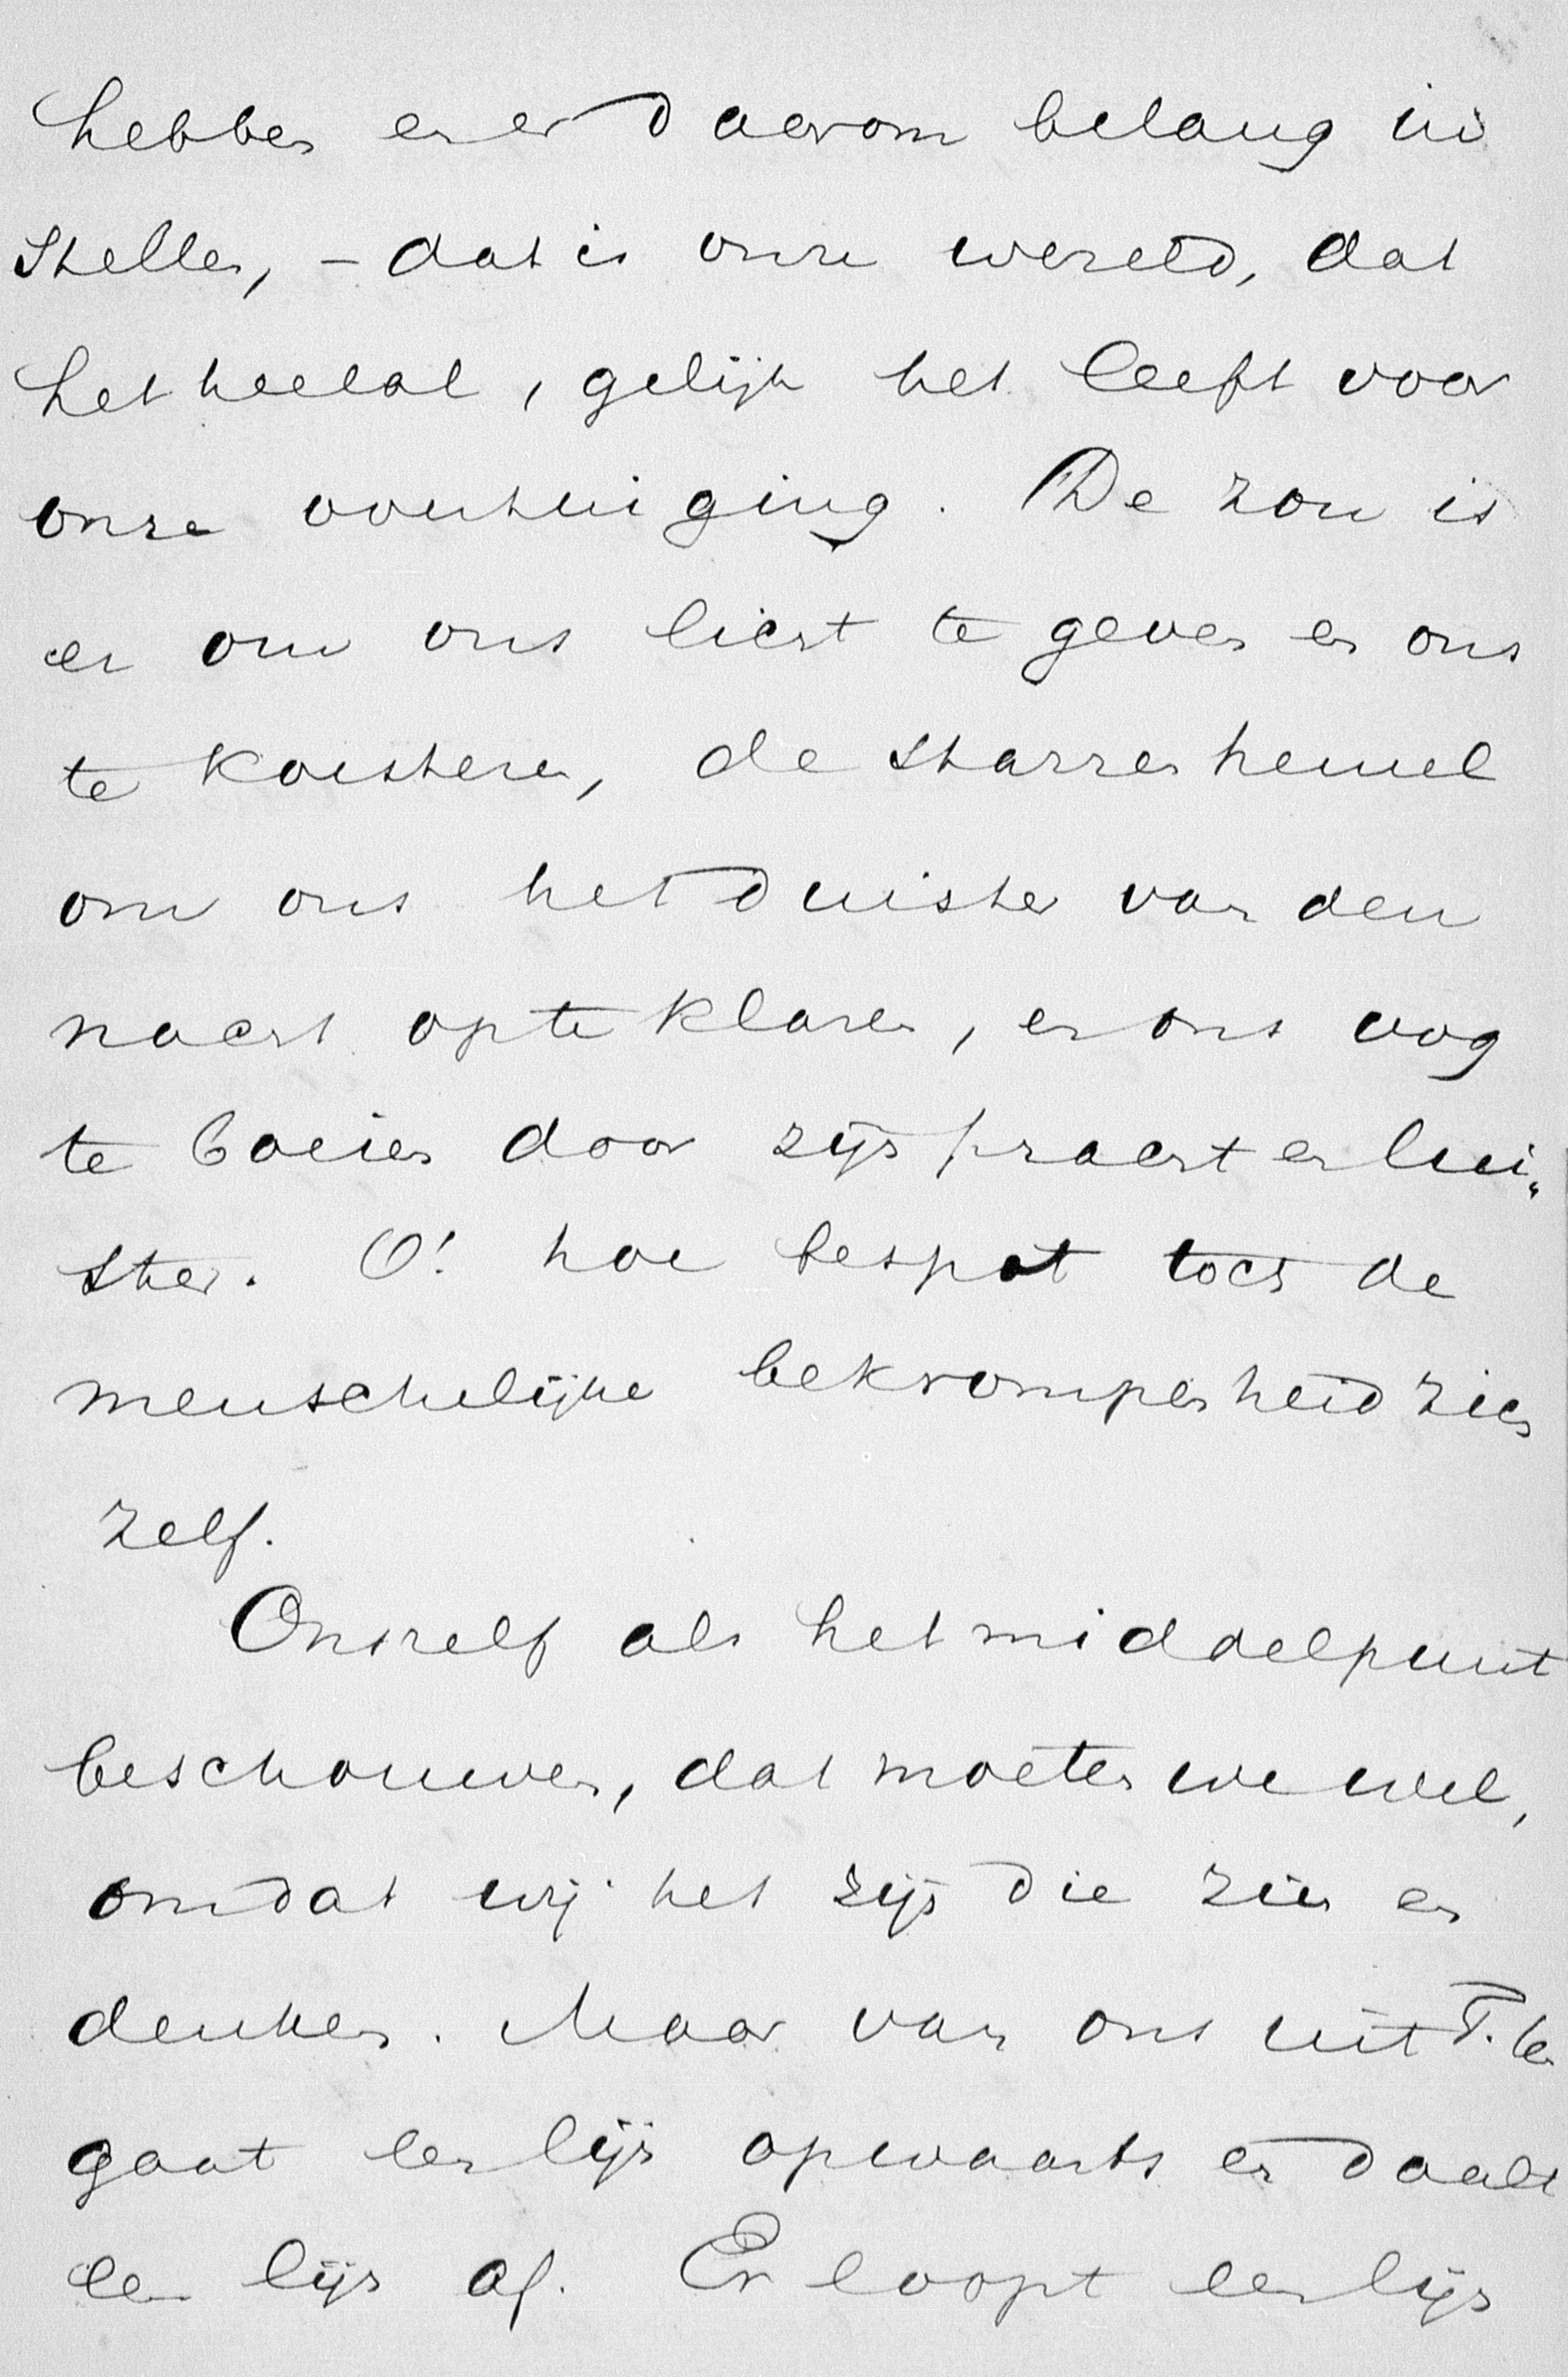 hebben en er daarom belang in
stellen, – dat is onze wereld, dat
het heelal, gelijk het leeft voor
onze overtuiging. De zon is
er om ons licht te geven en ons
te koesteren, de starrenhemel
om ons het duister van den
nacht op te klaren, en ons oog
te boeien door zijn pracht en lui„
ster. O! hoe bespot toch de
menschelijke bekrompenheid zich
zelf.
Onszelf als het middelpunt
beschouwen, dat moeten we wel,
omdat wij het zijn die zien en
denken. Maar van ons uit
gaat een lijn opwaarts en daalt
een lijn af. Er loopt een lijn